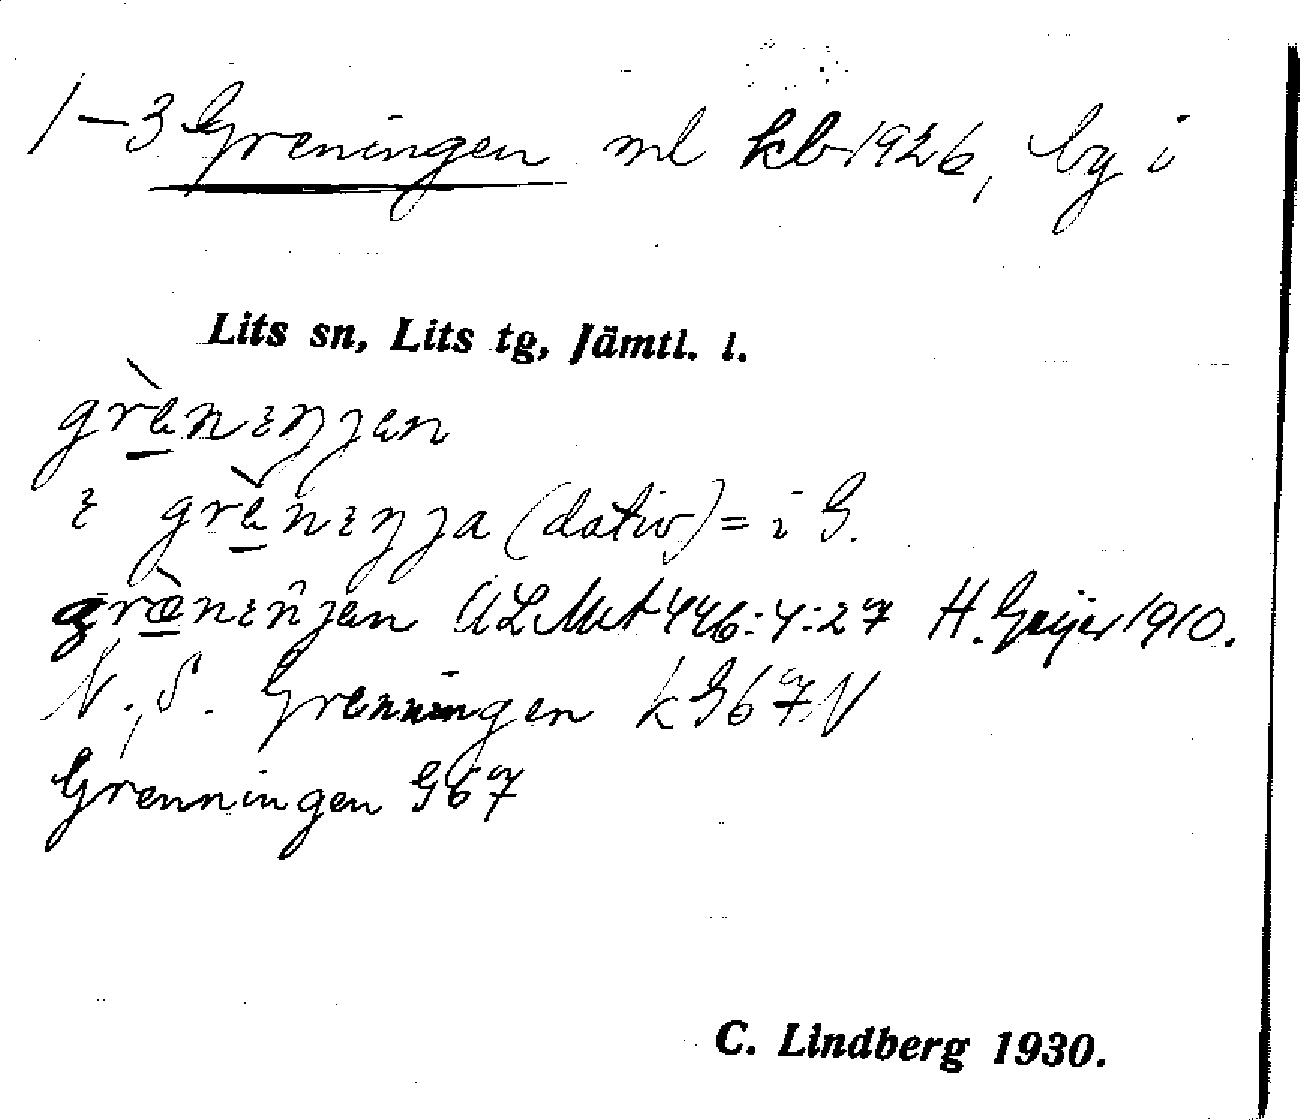 1–3 Greningen ml kb 1926, by i
Lits sn, Lits tg, Jämtl. l.
grènıŋȷen
ı grènıŋȷa (dativ) = i G.
græ̀nıŋȷen ULMA 446:4:27 H. Geijer 1910.
N., S. Grenningen k G67 N
Grenningen G67
C. Lindberg 1930.